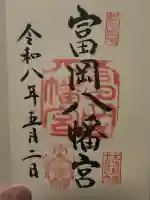 富岡八幡宮
令和八年五月二日